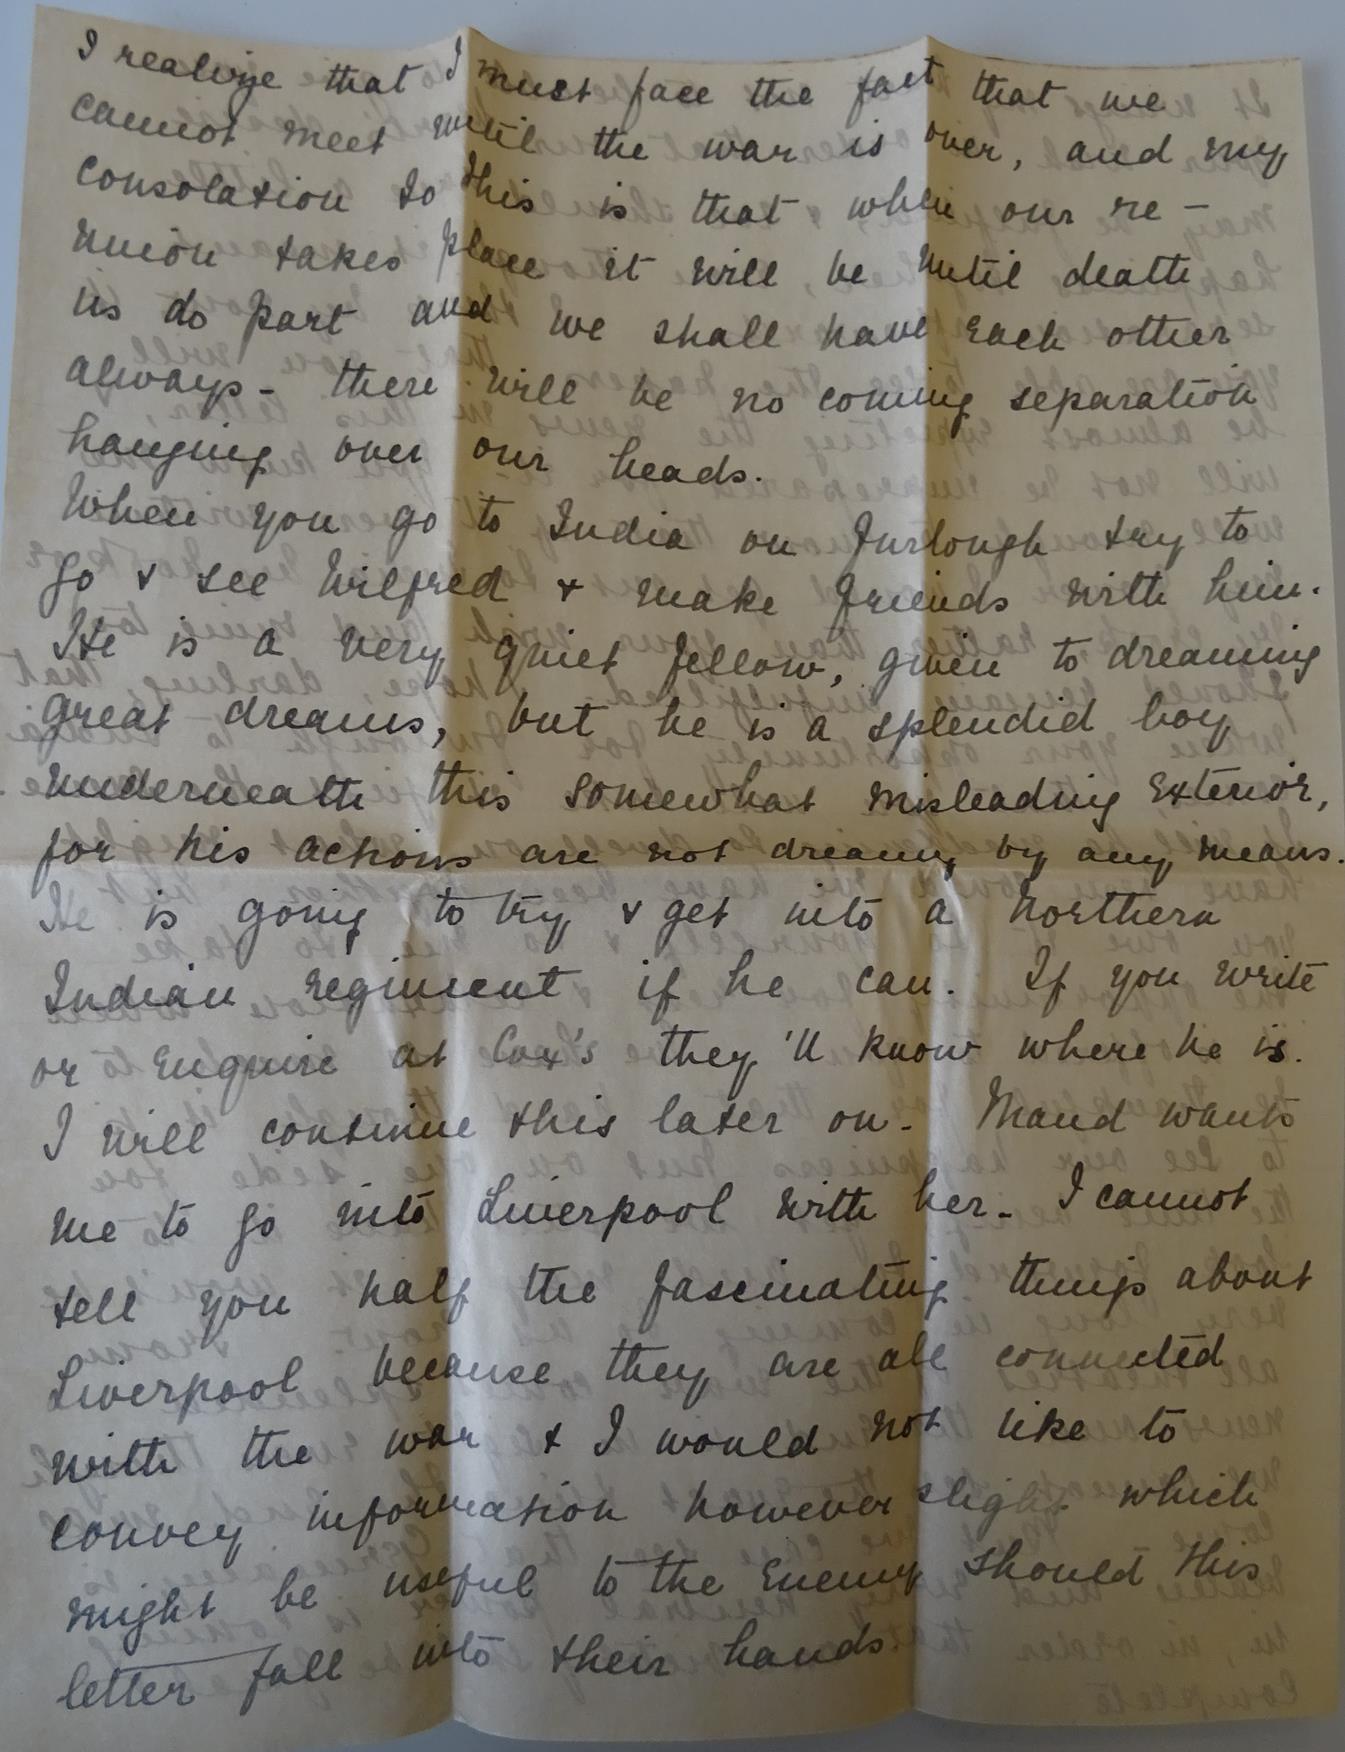 I realize that I must face the fact that we
cannot meet until the war is over, and my
consolation to this is that when our re-
union takes place it will be until death
us do part and we shall have each other
always - there will be no coming separation
hanging over our heads.
When you go to India on furlough try to
go & see Wilfred & make friends with him.
He is a very quiet fellow, given to dreaming
great dreams, but he is a splendid boy
underneath this somewhat misleading exterior,
for his actions are not dreamy by any means.
He is going to try & get into a Northern
Indian regiment if he can. If you write
or enquire at Cox's they'll know where he is.
I will continue this later on. Maud wants
me to go into Liverpool with her. I cannot
tell you half the fascinating things about
Liverpool because they are all connected
with the war & I would not like to
convey information however slight which
might be useful to the Enemy should this
letter fall into their hands.